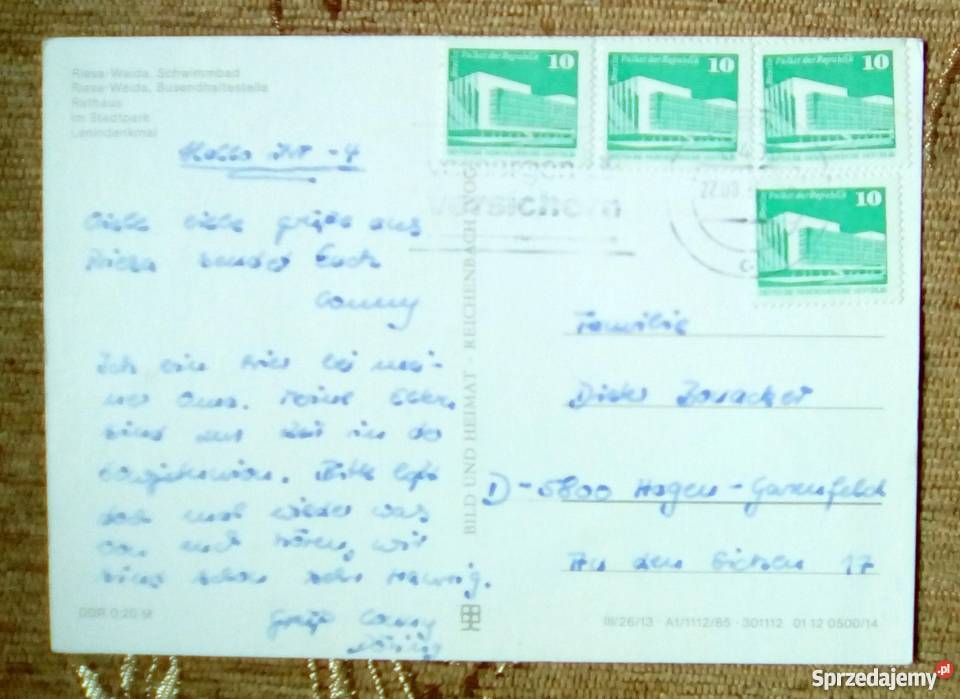 Riesa-Weida, Schwimmbad
Riesa-Weida, Busendhaltestelle
Rathaus
Im Stadtpark
Lenindenkmal
Hallo
liebe Grüße aus
Riesa sendet Euch
Conny
Ich bin hier bei mei-
ner Oma. Meine Eltern
sind zur Zeit in der
Bitte laßt
doch mal wieder was
von euch hören, wir
sind schon sehr
Gruß Conny
DDR 0,20 M
BILD UND HEIMAT · REICHENBACH (VOGTL)
10
Palast der Republik
10
Palast der Republik
10
Palast der Republik
10
Palast der Republik
versichern
Familie
Dieter
D-5800 Hagen-Garenfeld
An den Eichen 17
III/26/13 · A1/1112/85 · 301112 01 12 0500/14
Sprzedajemy.pl